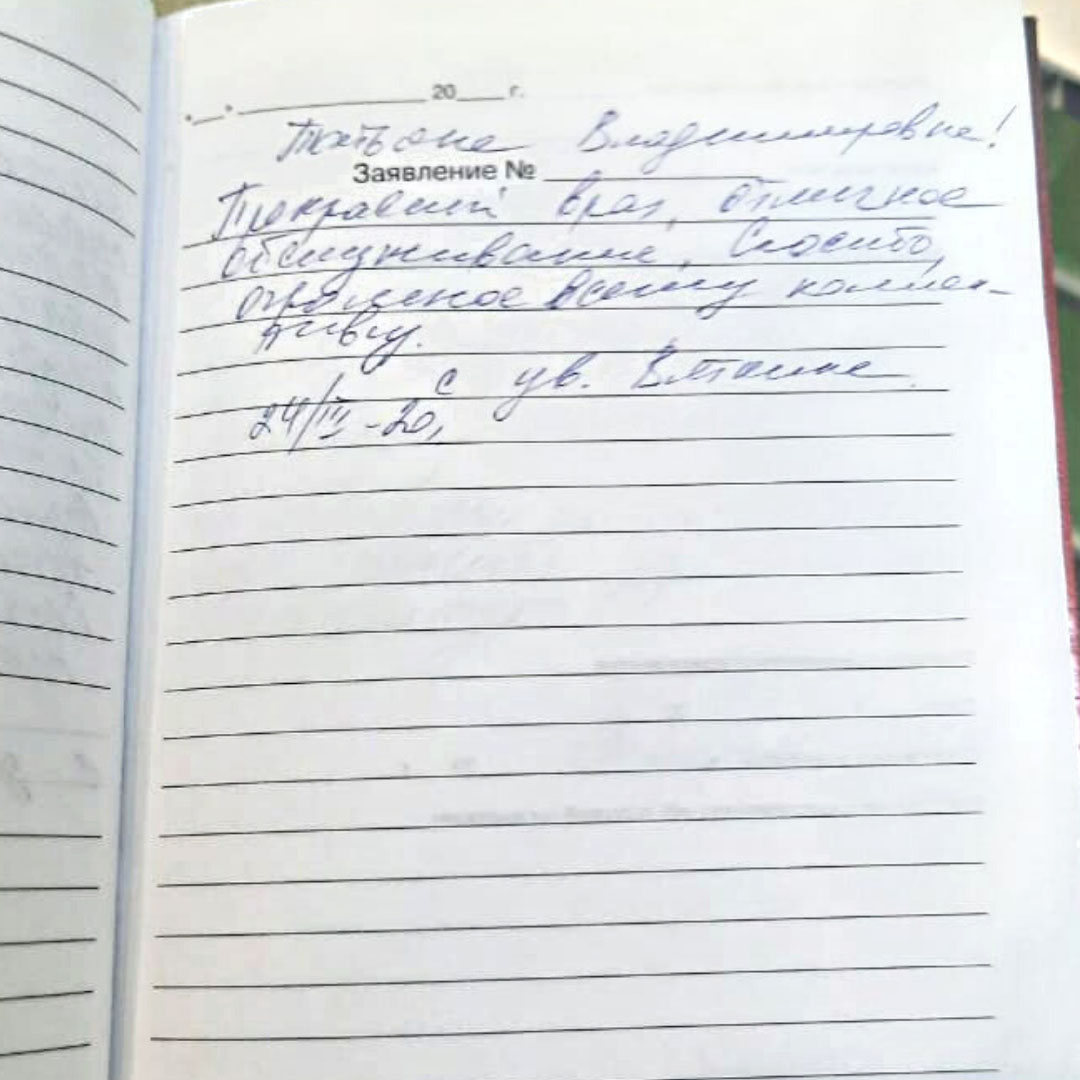 "__" ____________ 20____ г.
Татьяна Владимировна!
Заявление № ____________
Прекрасный врач, отличное
обслуживание, Спасибо,
огромное всему коллек-
тиву.
с ув.
24/III -20,